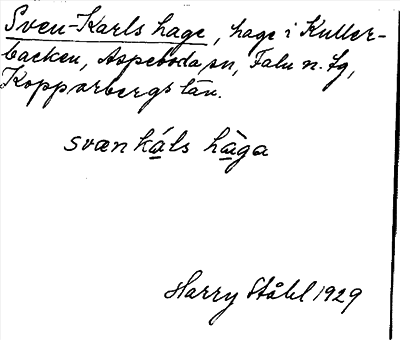 Sven-Karls hage, hage i Kuller-
backen, Aspeboda sn, Falu n. tg,
Kopparbergs län.
svænká̱ls hà̱ga
Harry Ståhl 1929